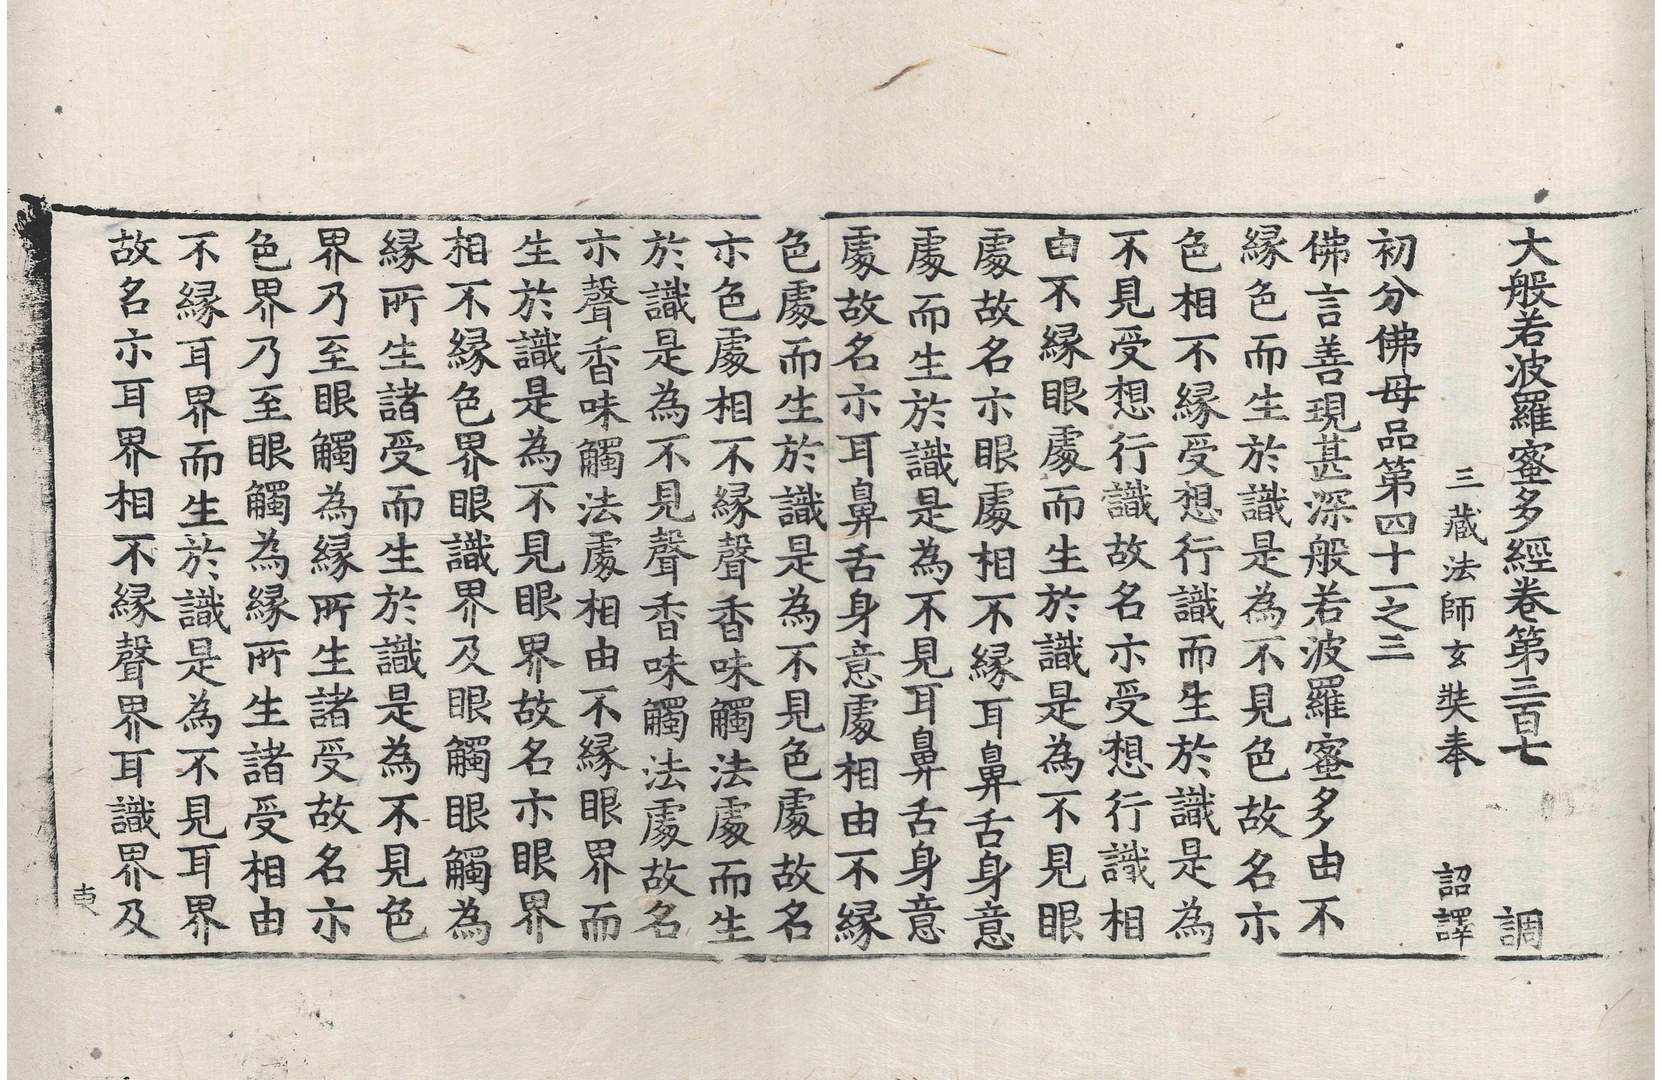 大般若波羅蜜多經卷第三百七　調
三藏法師玄奘奉　詔譯
初分佛母品第四十一之三
佛言善現甚深般若波羅蜜多由不
縁色而生於識是為不見色故名亦
色相不縁受想行識而生於識是為
不見受想行識故名亦受想行識相
由不縁眼處而生於識是為不見眼
處故名亦眼處相不縁耳鼻舌身意
處而生於識是為不見耳鼻舌身意
處故名亦耳鼻舌身意處相由不縁
色處而生於識是為不見色處故名
亦色處相不縁聲香味觸法處而生
於識是為不見聲香味觸法處故名
亦聲香味觸法處相由不縁眼界而
生於識是為不見眼界故名亦眼界
相不縁色界眼識界及眼觸眼觸為
縁所生諸受而生於識是為不見色
界乃至眼觸為縁所生諸受故名亦
色界乃至眼觸為縁所生諸受相由
不縁耳界而生於識是為不見耳界
故名亦耳界相不縁聲界耳識界及